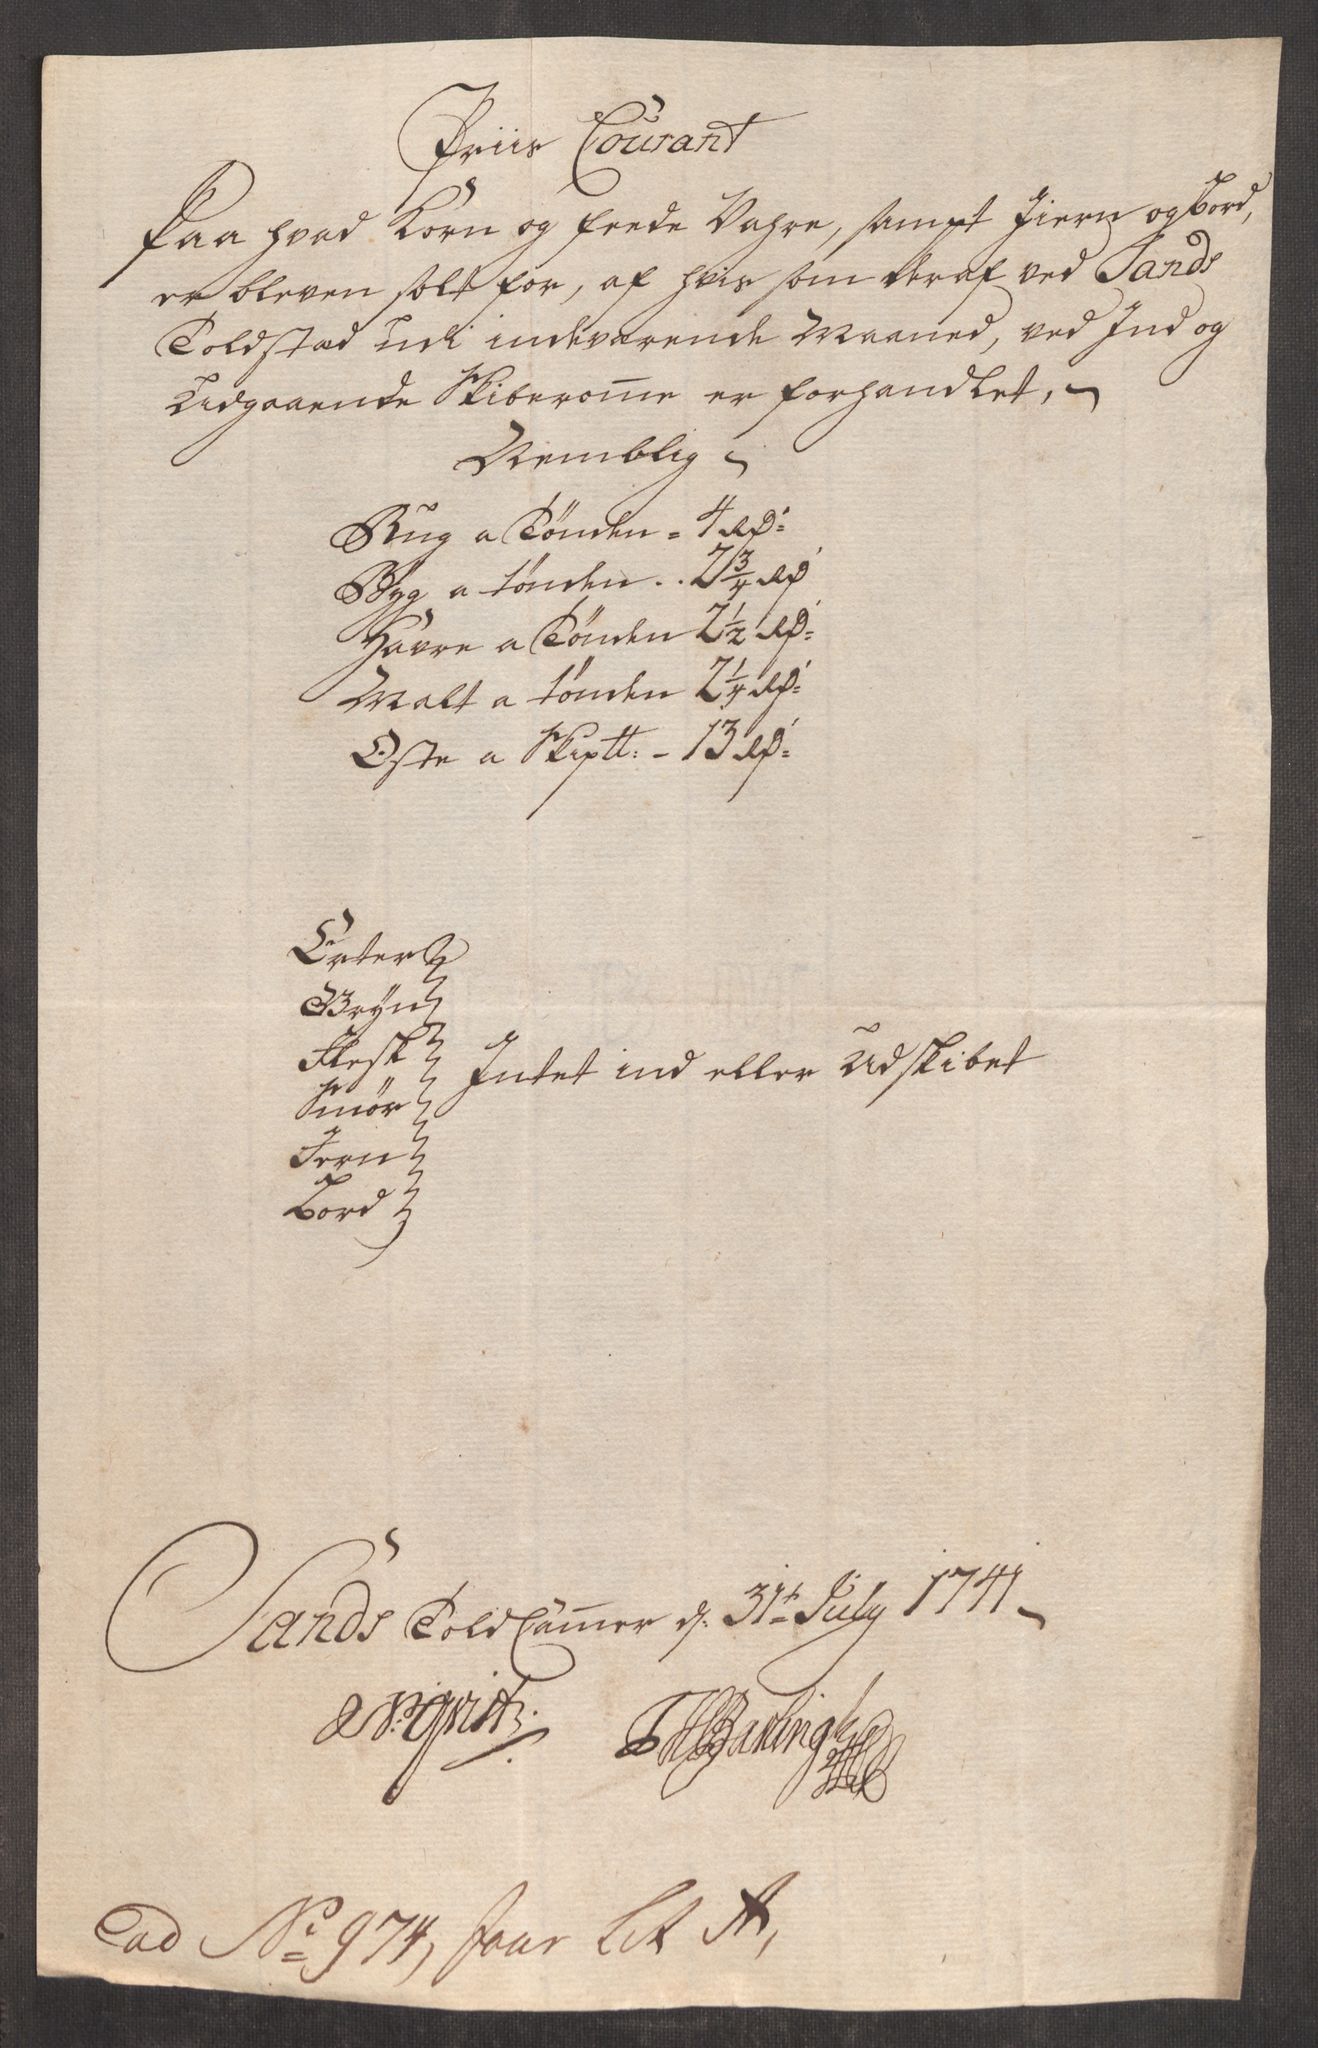 Priis Courant
Paa hvad Korn og feede Vahre, sampt Jiern og Bord,
er bleven solt for, af hvis som deraf ved Sands
Toldstad udi indeværende Maaned, ved Ind og
Udgaaende Skiberomme er forhandlet,
Nemblig
Rug a Tönden = 4 Rd:
Byg a tönden .. 2 3/4 Rd
Havre a Tönden 2 1/2 Rd:
Malt a tönden 2 1/4 Rd:
Oste a Skiptt: - 13 Rd:
Erter
Gryn
Flesk
Smör
Jern
Bord
Intet ind eller Udskibet
Sands Told Camer d: 31t July 1741
Qvist
Barling
No 974, Lit A,